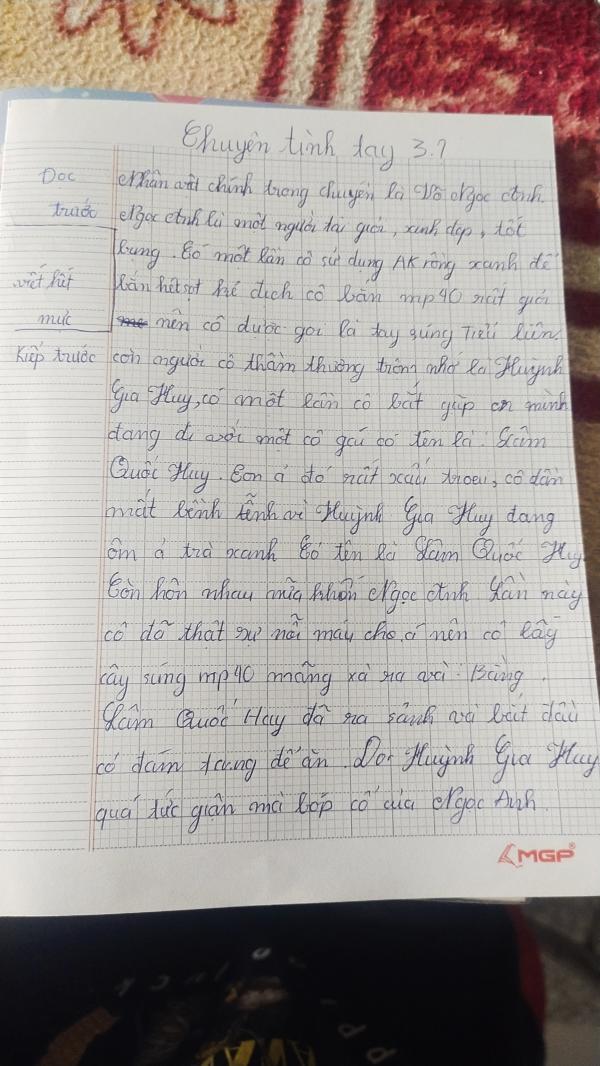 Chuyện tình tay 3.1
Đọc
trước
viết hết
mực
Kiếp trước
Nhân vật chính trong chuyện là Võ Ngọc Ánh
Ngọc Ánh là một người tài giỏi, xinh đẹp, tốt
bụng. Có một lần cô sử dụng AK rồng xanh để
bắn hẽtsọt kẻ địch cô bắn mp40 rất giỏi
nên cô được gọi là tay súng Tiểu liên.
còn người cô thầm thương trộm nhớ là Huỳnh
Gia Huy, có một lần cô bắt gặp cr mình
đang đi với một cô gái có tên là: Lâm
Quốc Huy. Con ả đó rất xấu, cô dần
mất bình tĩnh vì Huỳnh Gia Huy đang
ôm ả trà xanh Có tên là Lâm Quốc Huy
Còn hôn nhau nữa khốn Ngọc Ánh Lần này
cô đã thật sự nổi máy cho ả nên cô lấy
cây súng mp40 mãng xà ra và: Bằng.
Lâm Quốc Huy đã ra sảnh và bắt đầu
có đám tang để ăn. Do Huỳnh Gia Huy
quá tức giận mà bóp cổ của Ngọc Anh.
MGP